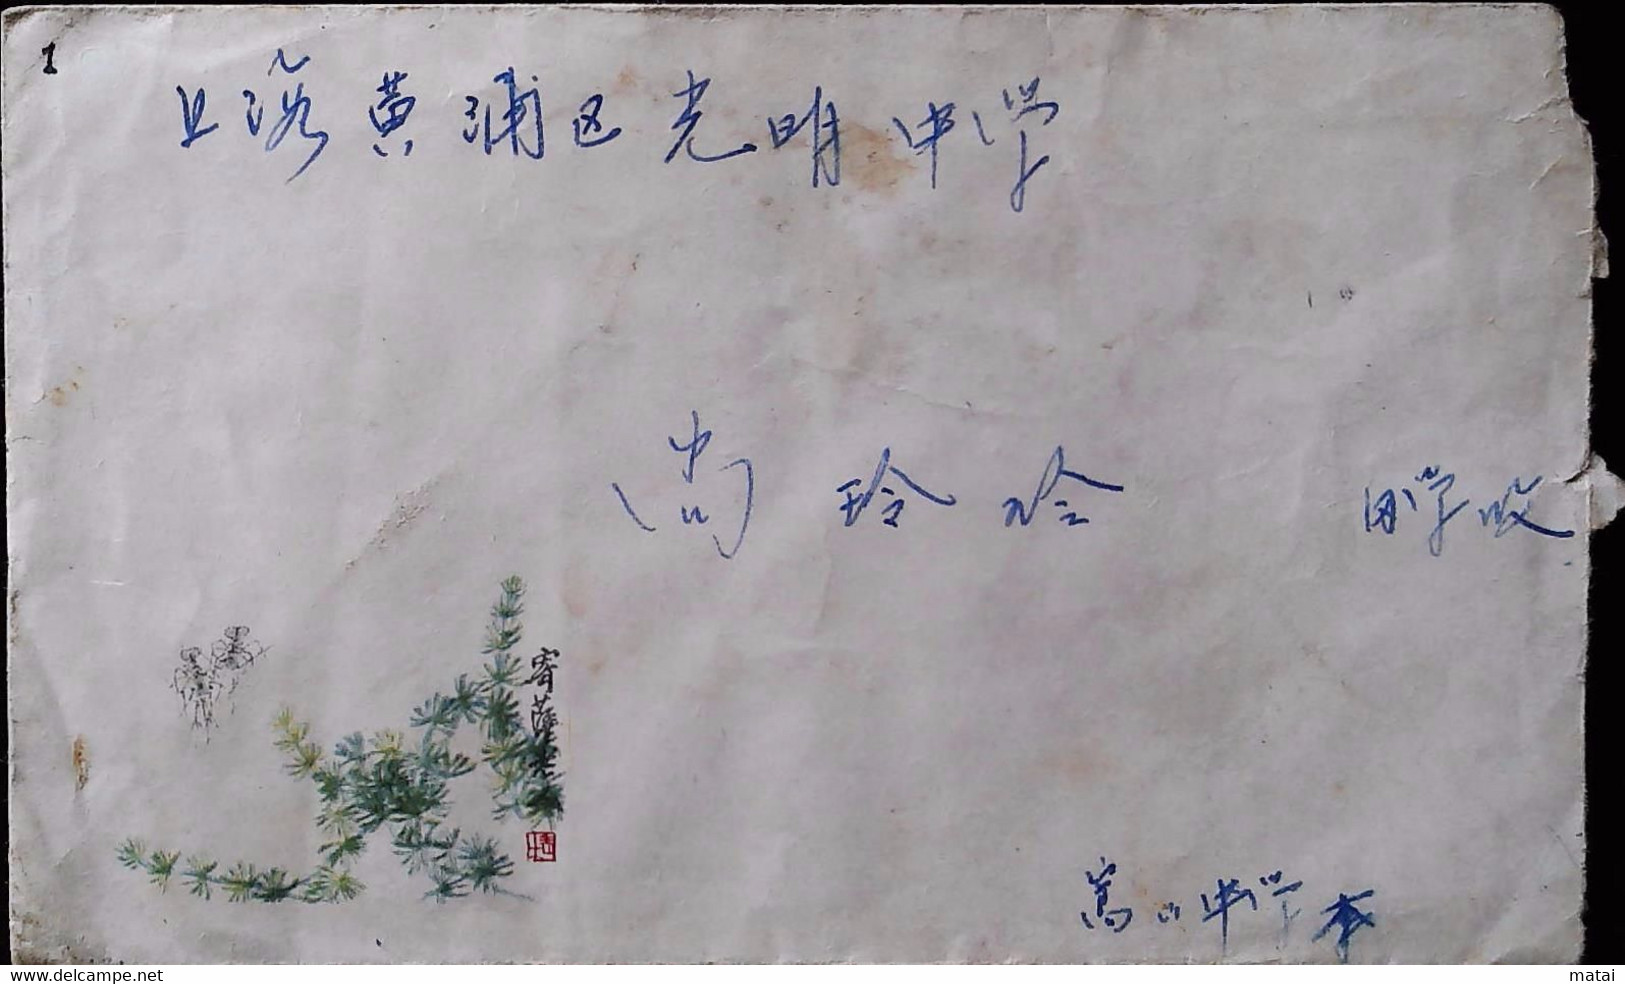 1
上海黄浦区光明中学
尚玲玲 同学收
寄萨
嵩山中学李
delcampe.net
matai